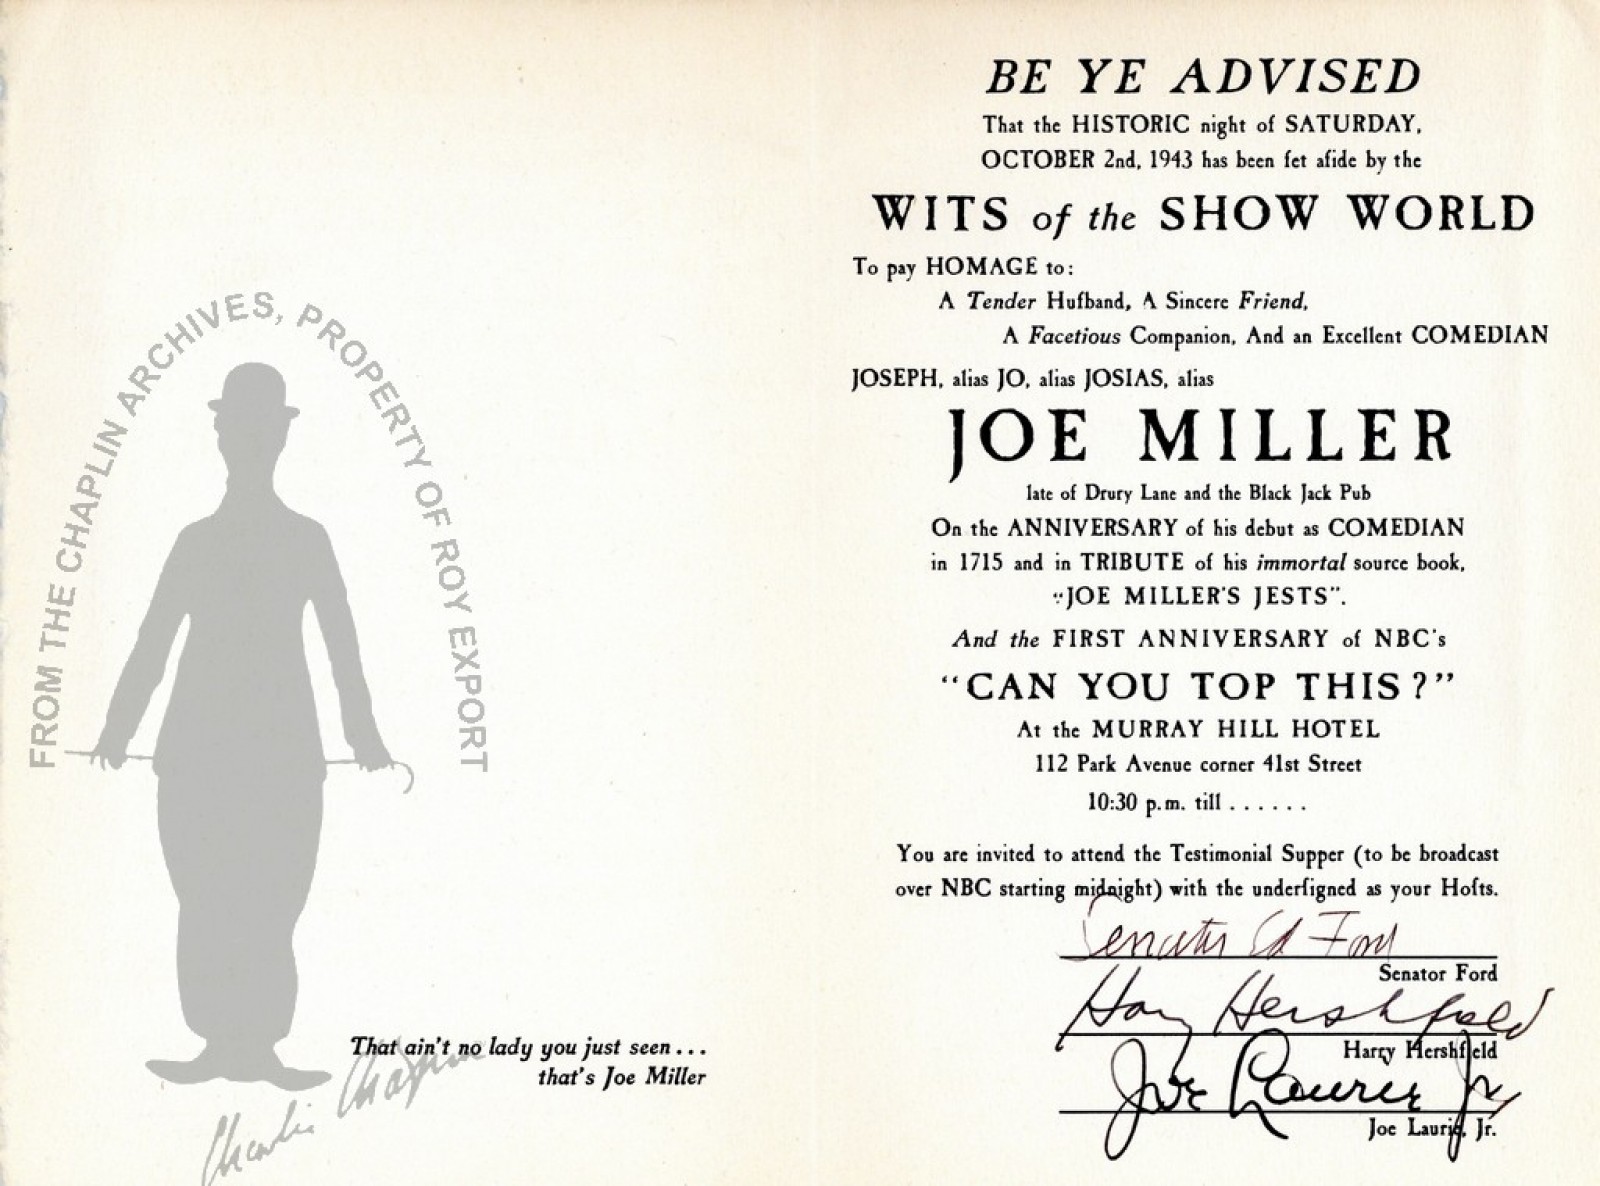 FROM THE CHAPLIN ARCHIVES, PROPERTY OF ROY EXPORT
Charlie Chaplin
That ain't no lady you just seen...
that's Joe Miller
BE YE ADVISED
That the HISTORIC night of SATURDAY,
OCTOBER 2nd, 1943 has been ſet aſide by the
WITS of the SHOW WORLD
To pay HOMAGE to:
A Tender Huſband, A Sincere Friend,
A Facetious Companion, And an Excellent COMEDIAN
JOSEPH, alias JO, alias JOSIAS, alias
JOE MILLER
late of Drury Lane and the Black Jack Pub
On the ANNIVERSARY of his debut as COMEDIAN
in 1715 and in TRIBUTE of his immortal source book,
"JOE MILLER'S JESTS".
And the FIRST ANNIVERSARY of NBC's
"CAN YOU TOP THIS?"
At the MURRAY HILL HOTEL
112 Park Avenue corner 41st Street
10:30 p.m. till ......
You are invited to attend the Testimonial Supper (to be broadcast
over NBC starting midnight) with the underſigned as your Hoſts.
Senator Ed Ford
Senator Ford
Harry Hershfield
Harry Hershfield
Joe Laurie Jr
Joe Laurie, Jr.